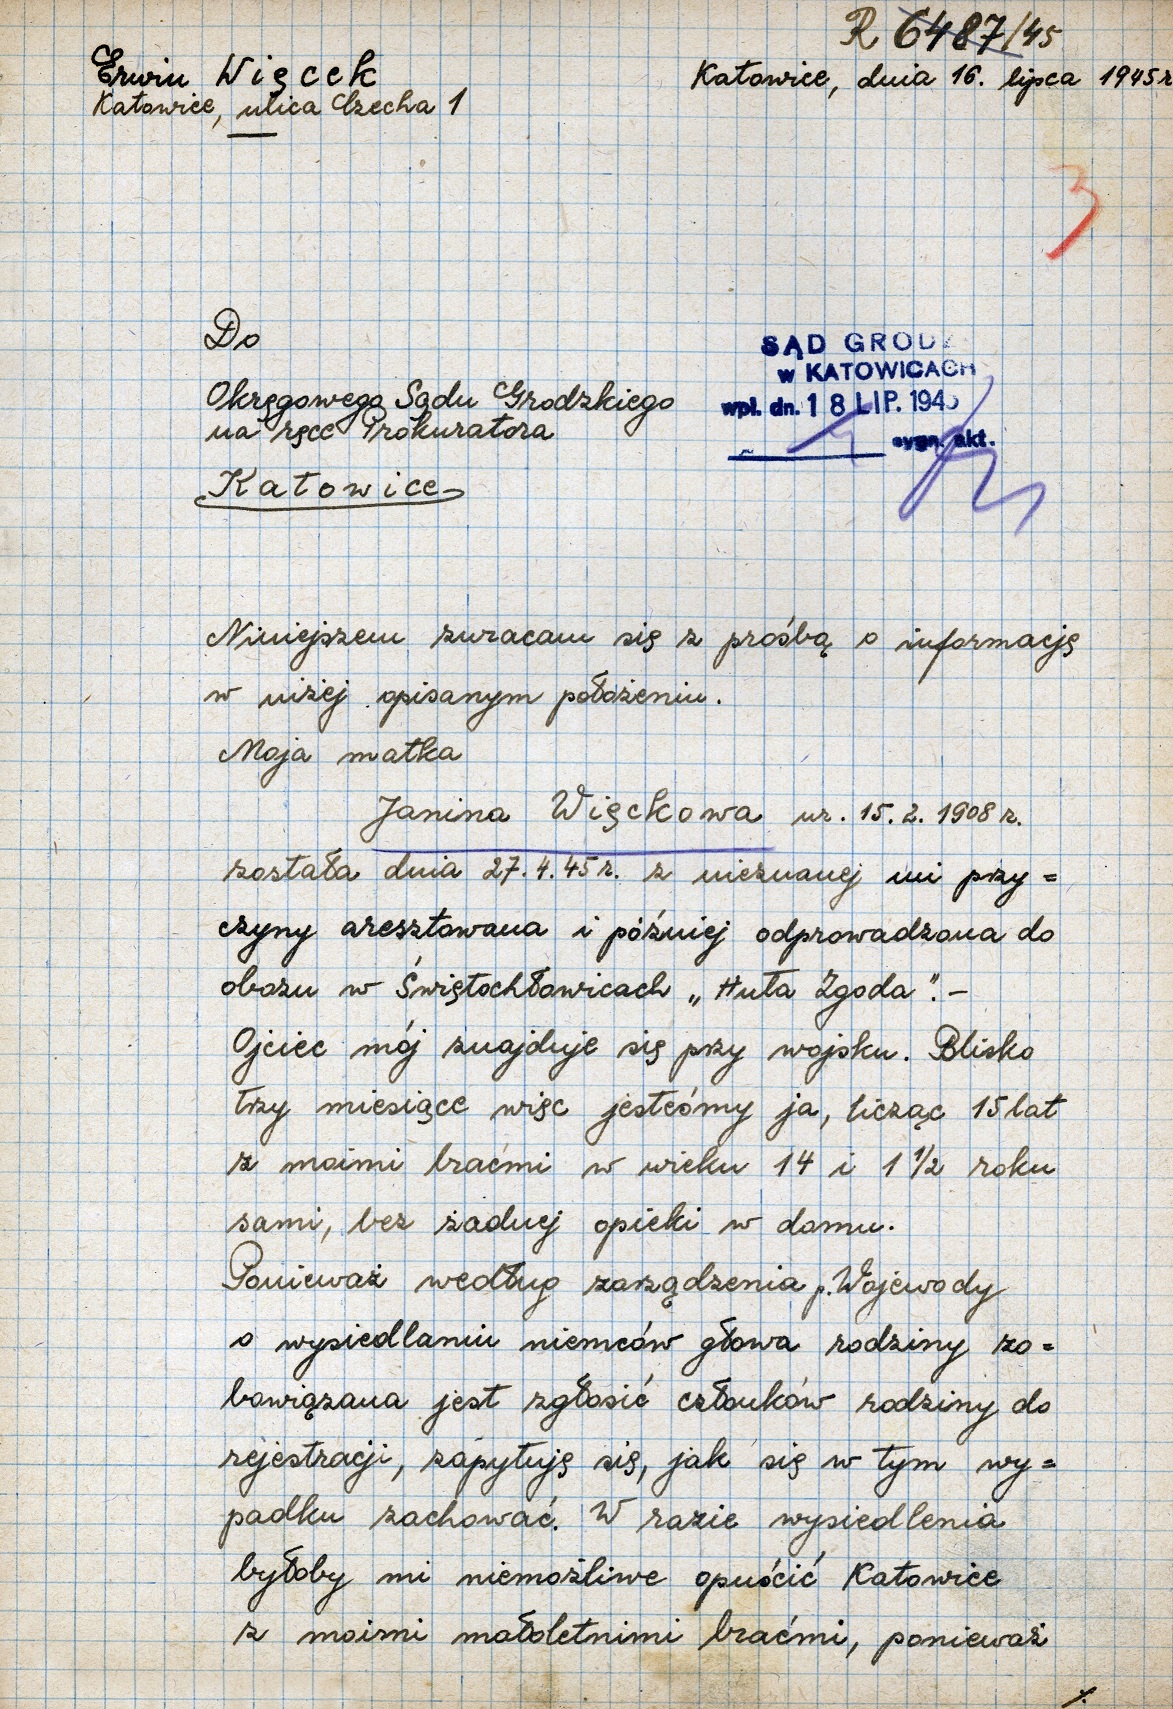 R 6487/45
Erwin Więcek
Katowice, dnia 16. lipca 1945 r
Katowice, ulica Czecha 1
3
Do
Okręgowego Sądu Grodzkiego
na ręce Prokuratora
Katowice
SĄD GRODZ
w KATOWICACH
wpł. dn. 18 LIP. 1945
sygn. akt.
Niniejszem zwracam się z prośbą o informację
w niżej opisanym położeniu.
Moja matka
Janina Więckowa ur. 15.2.1908 r.
została dnia 27.4.45 r. z nieznanej mi przy=
czyny aresztowana i później odprowadzona do
obozu w Świętochłowicach „Huta Zgoda”.-
Ojciec mój znajduje się przy wojsku. Blisko
trzy miesiące więc jesteśmy ja, licząc 15 lat
z moimi braćmi w wieku 14 i 1 1/2 roku
sami, bez żadnej opieki w domu.
Ponieważ według zarządzenia p. Wojewody
o wysiedlaniu niemców głowa rodziny zo=
bowiązana jest zgłosić członków rodziny do
rejestracji, zapytuję się, jak się w tym wy=
padku zachować. W razie wysiedlenia
byłoby mi niemożliwe opuścić Katowice
z moimi małoletnimi braćmi, ponieważ